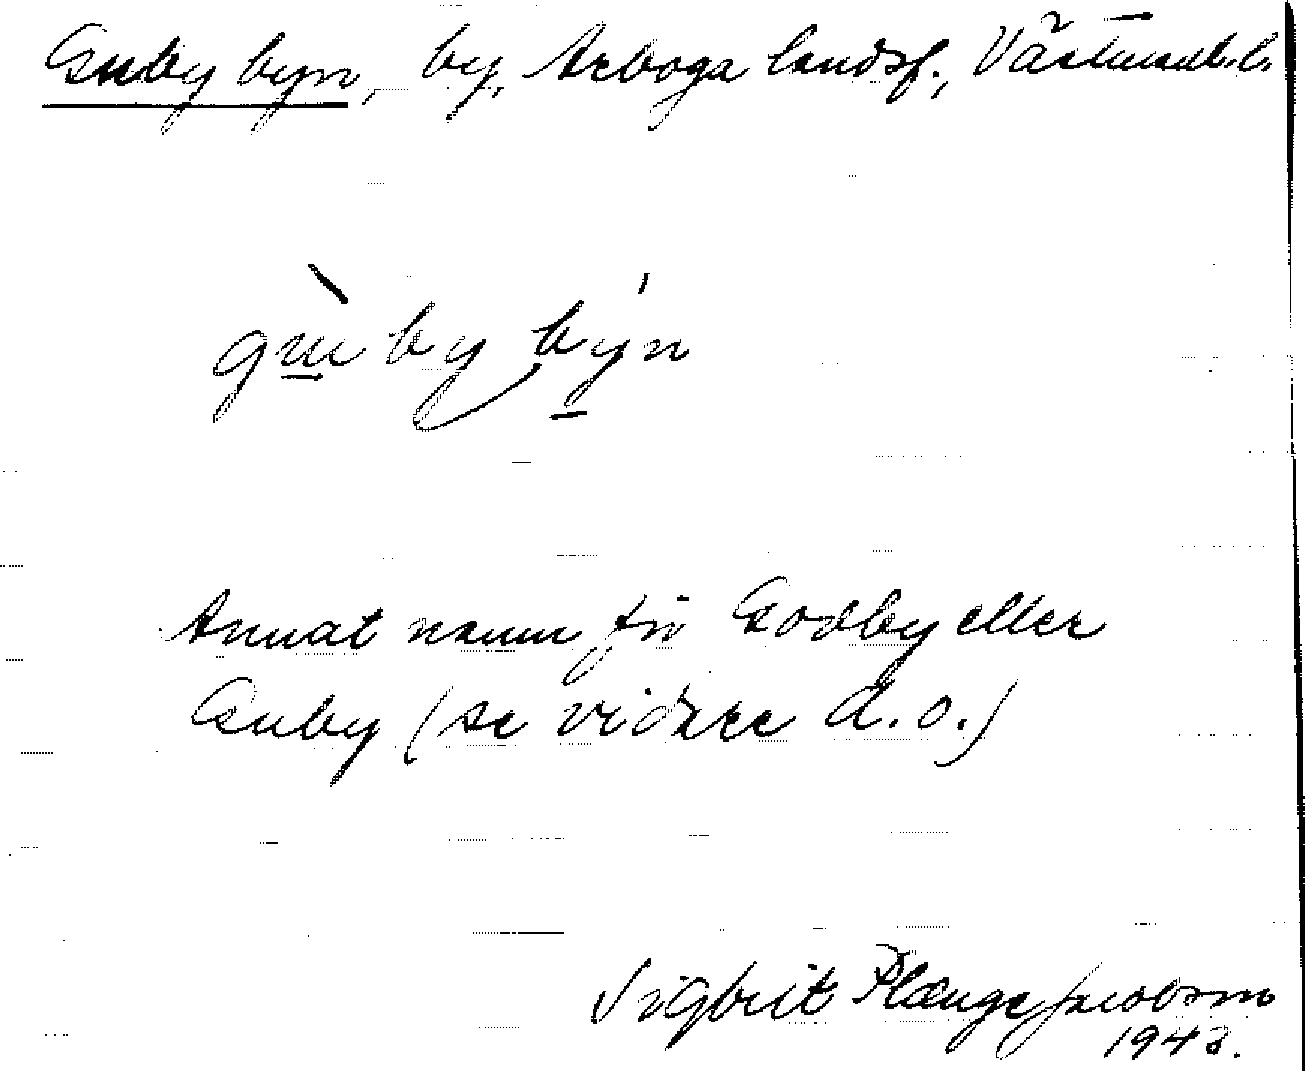 Guby byn, by, Arboga landsf., Västmanl. l.
gu̠by by̠n
Annat namn för Godby eller
Guby (se vidare d.o.)
Sigbrit Plænge Jacobson
1943.